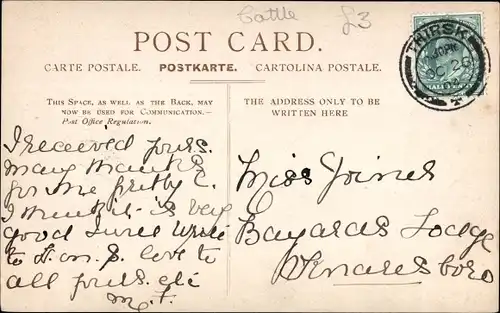 Cattle £3
POST CARD.
CARTE POSTALE. POSTKARTE. CARTOLINA POSTALE.
THIRSK
OC 26
THIS SPACE, AS WELL AS THE BACK, MAY
NOW BE USED FOR COMMUNICATION.—
Post Office Regulation.
THE ADDRESS ONLY TO BE
WRITTEN HERE
I received yours.
Many thanks
for the pretty C.
I think it is very
good I will write
to love to
all yours. etc
M. F.
Miss
Bayards Lodge
Knaresboro